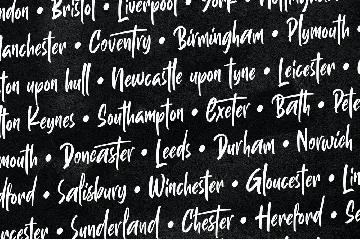 ndon • Bristol • Liverpool • York • Nottingham
anchester • Coventry • Birmingham • Plymouth
ton upon hull • Newcastle upon tyne • Leicester •
ton Keynes • Southampton • Exeter • Bath • Pete
mouth • Doncaster • Leeds • Durham • Norwich
dford • Salisbury • Winchester • Gloucester • Lin
rcester • Sunderland • Chester • Hereford • Se